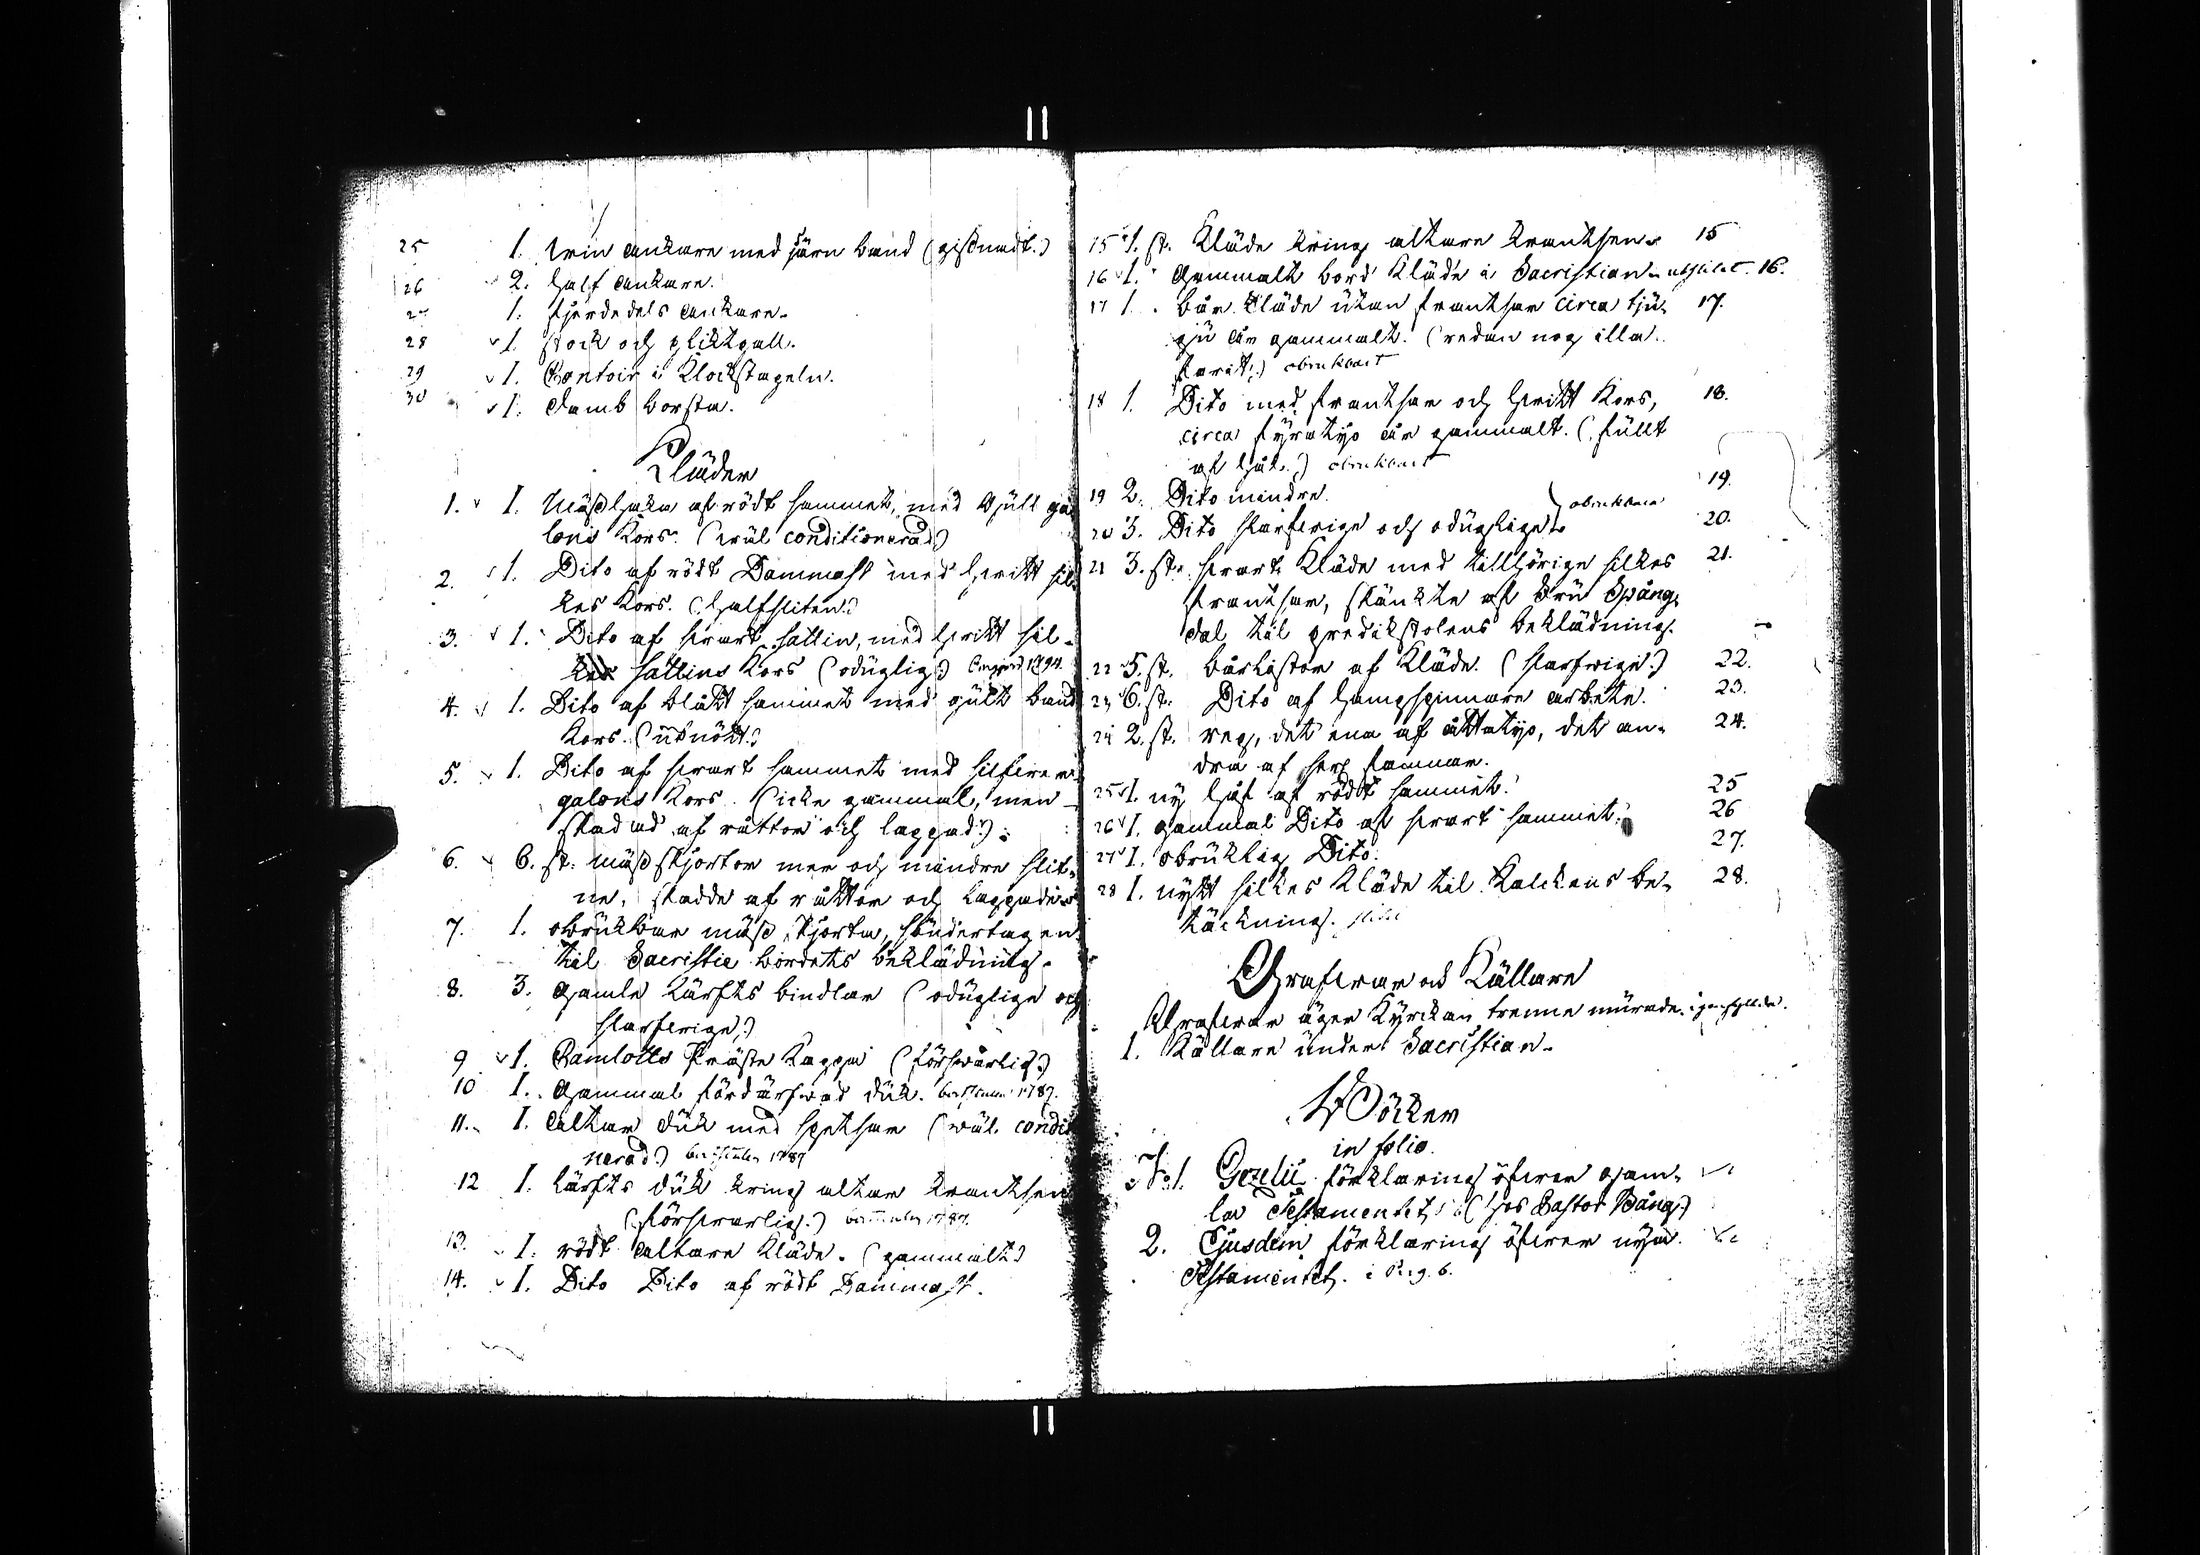 25 1. win ankare med järn band (gisnadt.)
26 2. half ankare.
27 1. fjerdedels ankare.
28 1. stock och pliktpall.
29 1. Contoir i Klockstapeln.
30 1. damb borsta.
Kläder
1. 1. Mässhaka af rödt sammet, med Gull ga
lons Kors. (wäl conditionerad)
2. 1. Dito af rödt Dammask med hwitt sil
kes Kors. (halfsliten.)
3. 1. Dito af swart sattin, med hwitt sil-
kes sattins Kors (oduglig.) 1794.
4. 1. Dito af blått sammet med gult band
Kors. (utnött.)
5. 1. Dito af swart sammet med silfwer
galons Kors. (icke gammal, men
skadad af råttor och lappad.)
6. 6. st. mäss skjortor mer och mindre slit-
ne, skadde af råttor och lappade.
7. 1. obrukbar mäss skjorta, söndertagen
til Sacristie bordets beklädning.
8. 3. gamle lärfts bindlar (odüglige och
slarfwige.)
9 1. Camlotts Präste Kappa (förswarlig.)
10 1. Gammal förderfwad duk. 1787.
11. 1. altar duk med spetsar (wäl condi
nerad.) 1787
12 1. lärfts duk kring altar krantsen
(förswarlig.) 1787.
13. 1. rödt altare Kläde. (gammalt)
14. 1. Dito Dito af rödt Dammask.
15 1. st. Kläde kring altare krantsen 15
16 1. Gammalt bord Kläde i Sacristian utslitet. 16.
17 1. bår Kläde utan frantsar circa tju- 17.
gu år gammalt. (redan nog illa
farit.) obrukbart
18 1. Dito med frantsar och hwitt Kors, 18.
circa fyratyo år gammalt. (fullt
af hål.) obrukbart
19 2. Dito mindre. 19.
obrukbara
20 3. Dito slarfwige och oduglige 20.
21 3. st. swart Kläde med tillhörige silkes 21.
frantsar, skänkte af Fru Spång-
dal til predikstolens beklädning.
22 5. st. bårlistor af Kläde. (slarfwige.) 22.
23 6. st. Dito af hampspinnare arbete. 23.
24 2. st. rep, det ena af åttatyo, det an- 24.
dra af sex famnar.
25 1. ny håf af rödt sammet. 25
26 1. gammal Dito af swart sammet. 26
27 1. obruklig Dito. 27.
28 1. nytt silkes Kläde til Kalckens be- 28.
täckning.
Grafwar och Källare
Grafwar äger Kyrckan trenne murade. igenfyllda.
1. Källare under Sacristian.
Böcker
in folio.
No. 1. Gezelii förklaring öfwer gam-
la Testamentet, (hos Pastor Bång.)
2. Ejusdem förklaring öfwer nya
Testamentet.